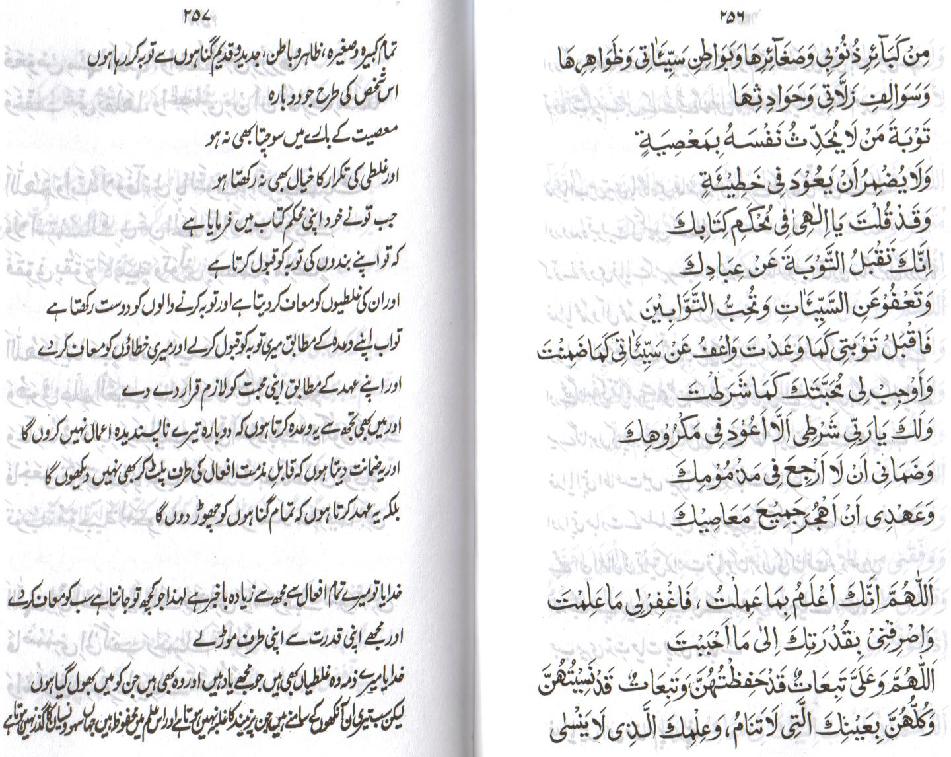 ٢٥٦
مِنْ كَبَآئِرِ ذُنُوْبِيْ وَصَغَآئِرِهَا وَبَوَاطِنِ سَيِّئَاتِيْ وَظَوَاهِرِهَا
وَسَوَالِفِ زَلَّاتِيْ وَحَوَادِثِهَا
تَوْبَةَ مَنْ لَا يُحَدِّثُ نَفْسَهُ بِمَعْصِيَةٍ
وَلَا يُضْمِرُ اَنْ يَعُوْدَ فِيْ خَطِيْئَةٍ
وَقَدْ قُلْتَ يَا اِلٰهِيْ فِيْ مُحْكَمِ كِتَابِكَ
اِنَّكَ تَقْبَلُ التَّوْبَةَ عَنْ عِبَادِكَ
وَتَعْفُوْ عَنِ السَّيِّئَاتِ وَتُحِبُّ التَّوَّابِيْنَ
فَاقْبَلْ تَوْبَتِيْ كَمَا وَعَدْتَ وَاعْفُ عَنْ سَيِّئَاتِيْ كَمَا ضَمِنْتَ
وَاَوْجِبْ لِيْ مَحَبَّتَكَ كَمَا شَرَطْتَ
وَلَكَ يَا رَبِّ شَرْطِيْ اَلَّا اَعُوْدَ فِيْ مَكْرُوْهِكَ
وَضَمَانِيْ اَنْ لَا اَرْجِعَ فِيْ مَذْمُوْمِكَ
وَعَهْدِيْ اَنْ اَهْجُرَ جَمِيْعَ مَعَاصِيْكَ
اَللّٰهُمَّ اِنَّكَ اَعْلَمُ بِمَا عَمِلْتُ، فَاغْفِرْ لِيْ مَا عَلِمْتَ
وَاصْرِفْنِيْ بِقُدْرَتِكَ اِلٰى مَا اَحْبَبْتَ
اَللّٰهُمَّ وَعَلَيَّ تَبِعَاتٌ قَدْ حَفِظْتُهُنَّ وَتَبِعَاتٌ قَدْ نَسِيْتُهُنَّ
وَكُلُّهُنَّ بِعَيْنِكَ الَّتِيْ لَا تَنَامُ، وَعِلْمِكَ الَّذِيْ لَا يَنْسٰى
٢٥٧
تمام کبیرہ و صغیرہ، ظاہر و باطن، جدید و قدیم گناہوں سے توبہ کر رہا ہوں
اس شخص کی طرح جو دوبارہ
معصیت کے بارے میں سوچتا بھی نہ ہو
اور غلطی کی تکرار کا خیال بھی نہ رکھتا ہو
جب تو نے خود اپنی محکم کتاب میں فرمایا ہے
کہ تو اپنے بندوں کی توبہ کو قبول کرتا ہے
اور ان کی غلطیوں کو معاف کر دیتا ہے اور توبہ کرنے والوں کو دوست رکھتا ہے
تو اب اپنے وعدہ کے مطابق میری توبہ کو قبول کر لے اور میری خطاؤں کو معاف کر دے
اور اپنے عہد کے مطابق اپنی محبت کو لازم قرار دے دے
اور میں بھی تجھ سے یہ وعدہ کرتا ہوں کہ دوبارہ تیرے ناپسندیدہ اعمال نہیں کروں گا
اور یہ ضمانت دیتا ہوں کہ قابلِ مذمت افعال کی طرف پلٹ کر بھی نہیں دیکھوں گا
بلکہ یہ عہد کرتا ہوں کہ تمام گناہوں کو چھوڑ دوں گا
خدایا تو میرے تمام افعال سے مجھ سے زیادہ باخبر ہے لہٰذا جو کچھ تو جانتا ہے سب کو معاف کر دے
اور مجھے اپنی قدرت سے اپنی طرف موڑ لے
خدایا میرے ذمہ وہ غلطیاں بھی ہیں جو مجھے یاد ہیں اور وہ بھی ہیں جن کو میں بھول گیا ہوں
لیکن سب تیری ان آنکھوں کے سامنے ہیں جن پر نیند کا غلبہ نہیں ہوتا ہے اور اس علم میں محفوظ ہیں جہاں سہو و نسیان کا گذر نہیں ہوتا ہے